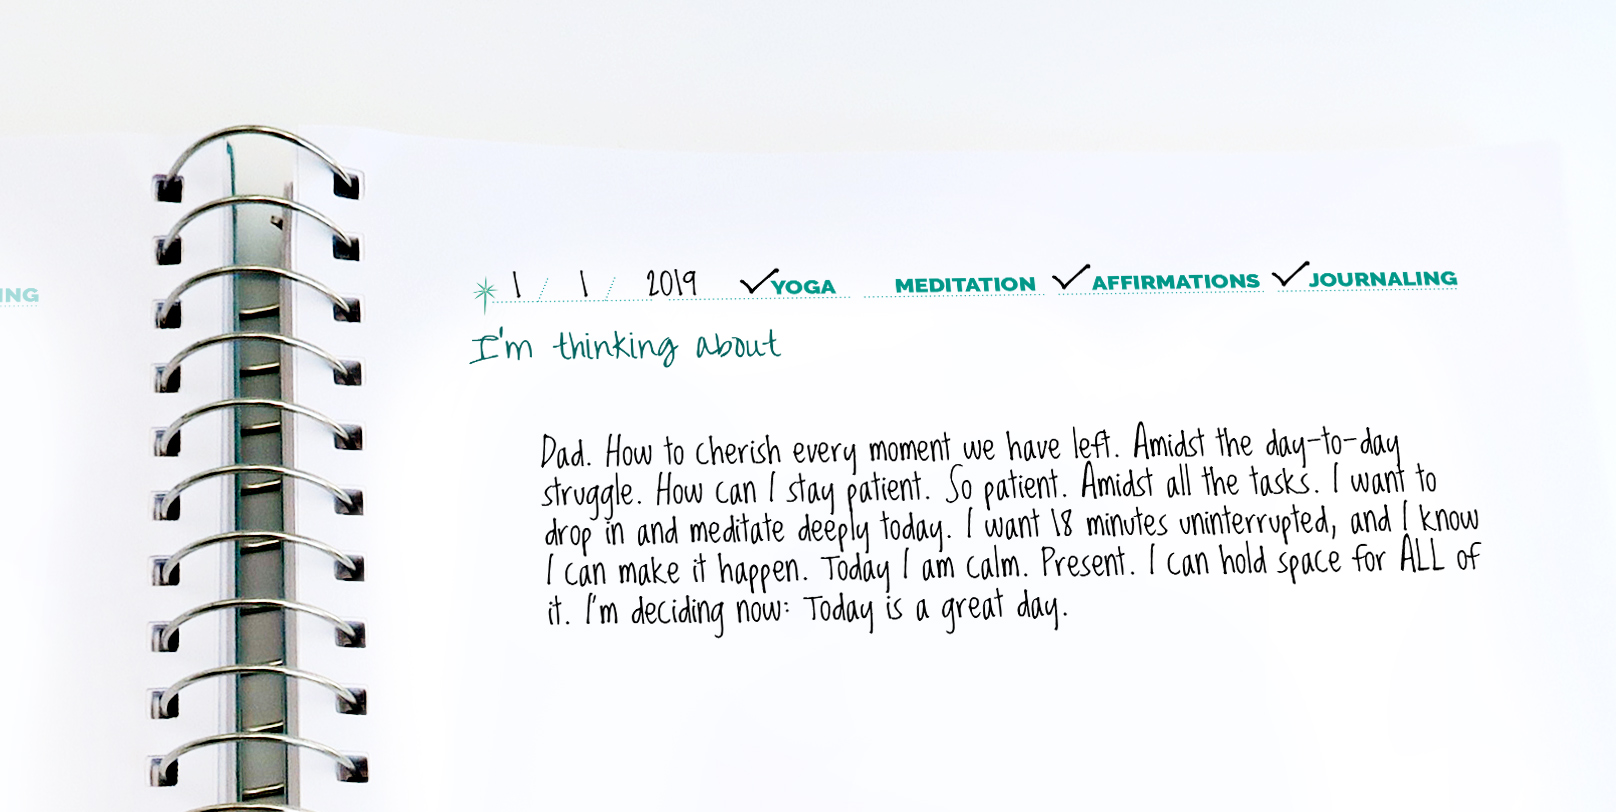 ING
1 / 1 / 2019 YOGA MEDITATION AFFIRMATIONS JOURNALING
I'm thinking about
Dad. How to cherish every moment we have left. Amidst the day-to-day
struggle. How can I stay patient. So patient. Amidst all the tasks. I want to
drop in and meditate deeply today. I want 18 minutes uninterrupted, and I know
I can make it happen. Today I am calm. Present. I can hold space for ALL of
it. I'm deciding now: Today is a great day.